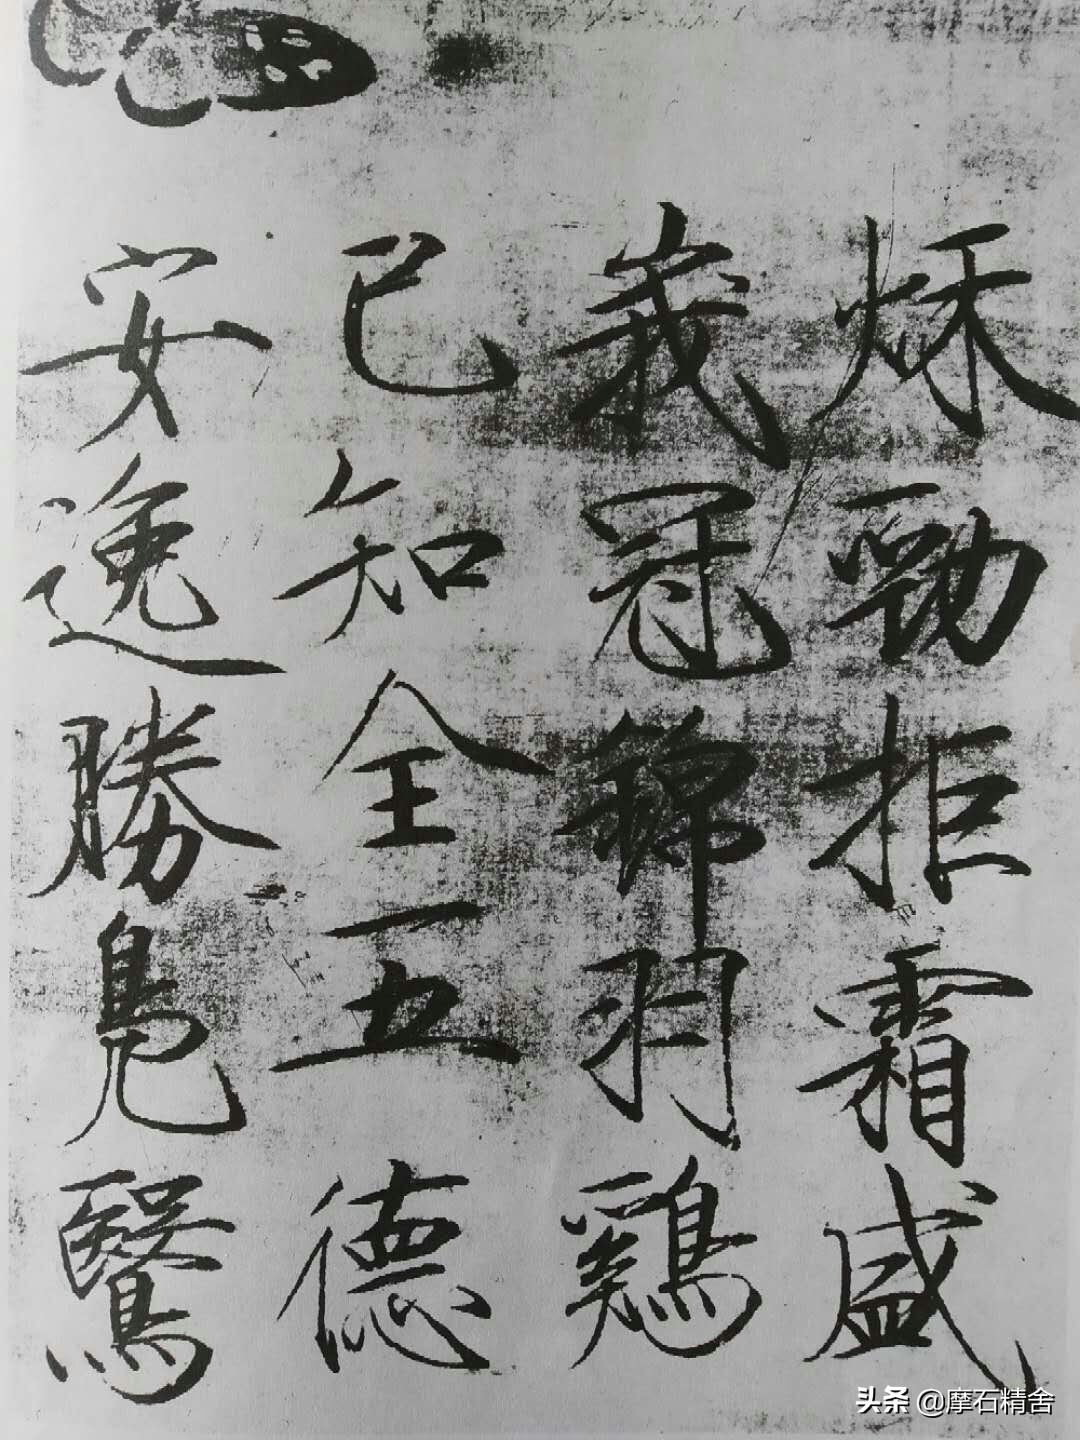 秌勁拒霜盛
峩冠錦羽鷄
已知全五德
安逸勝鳧鷖
头条 @摩石精舍